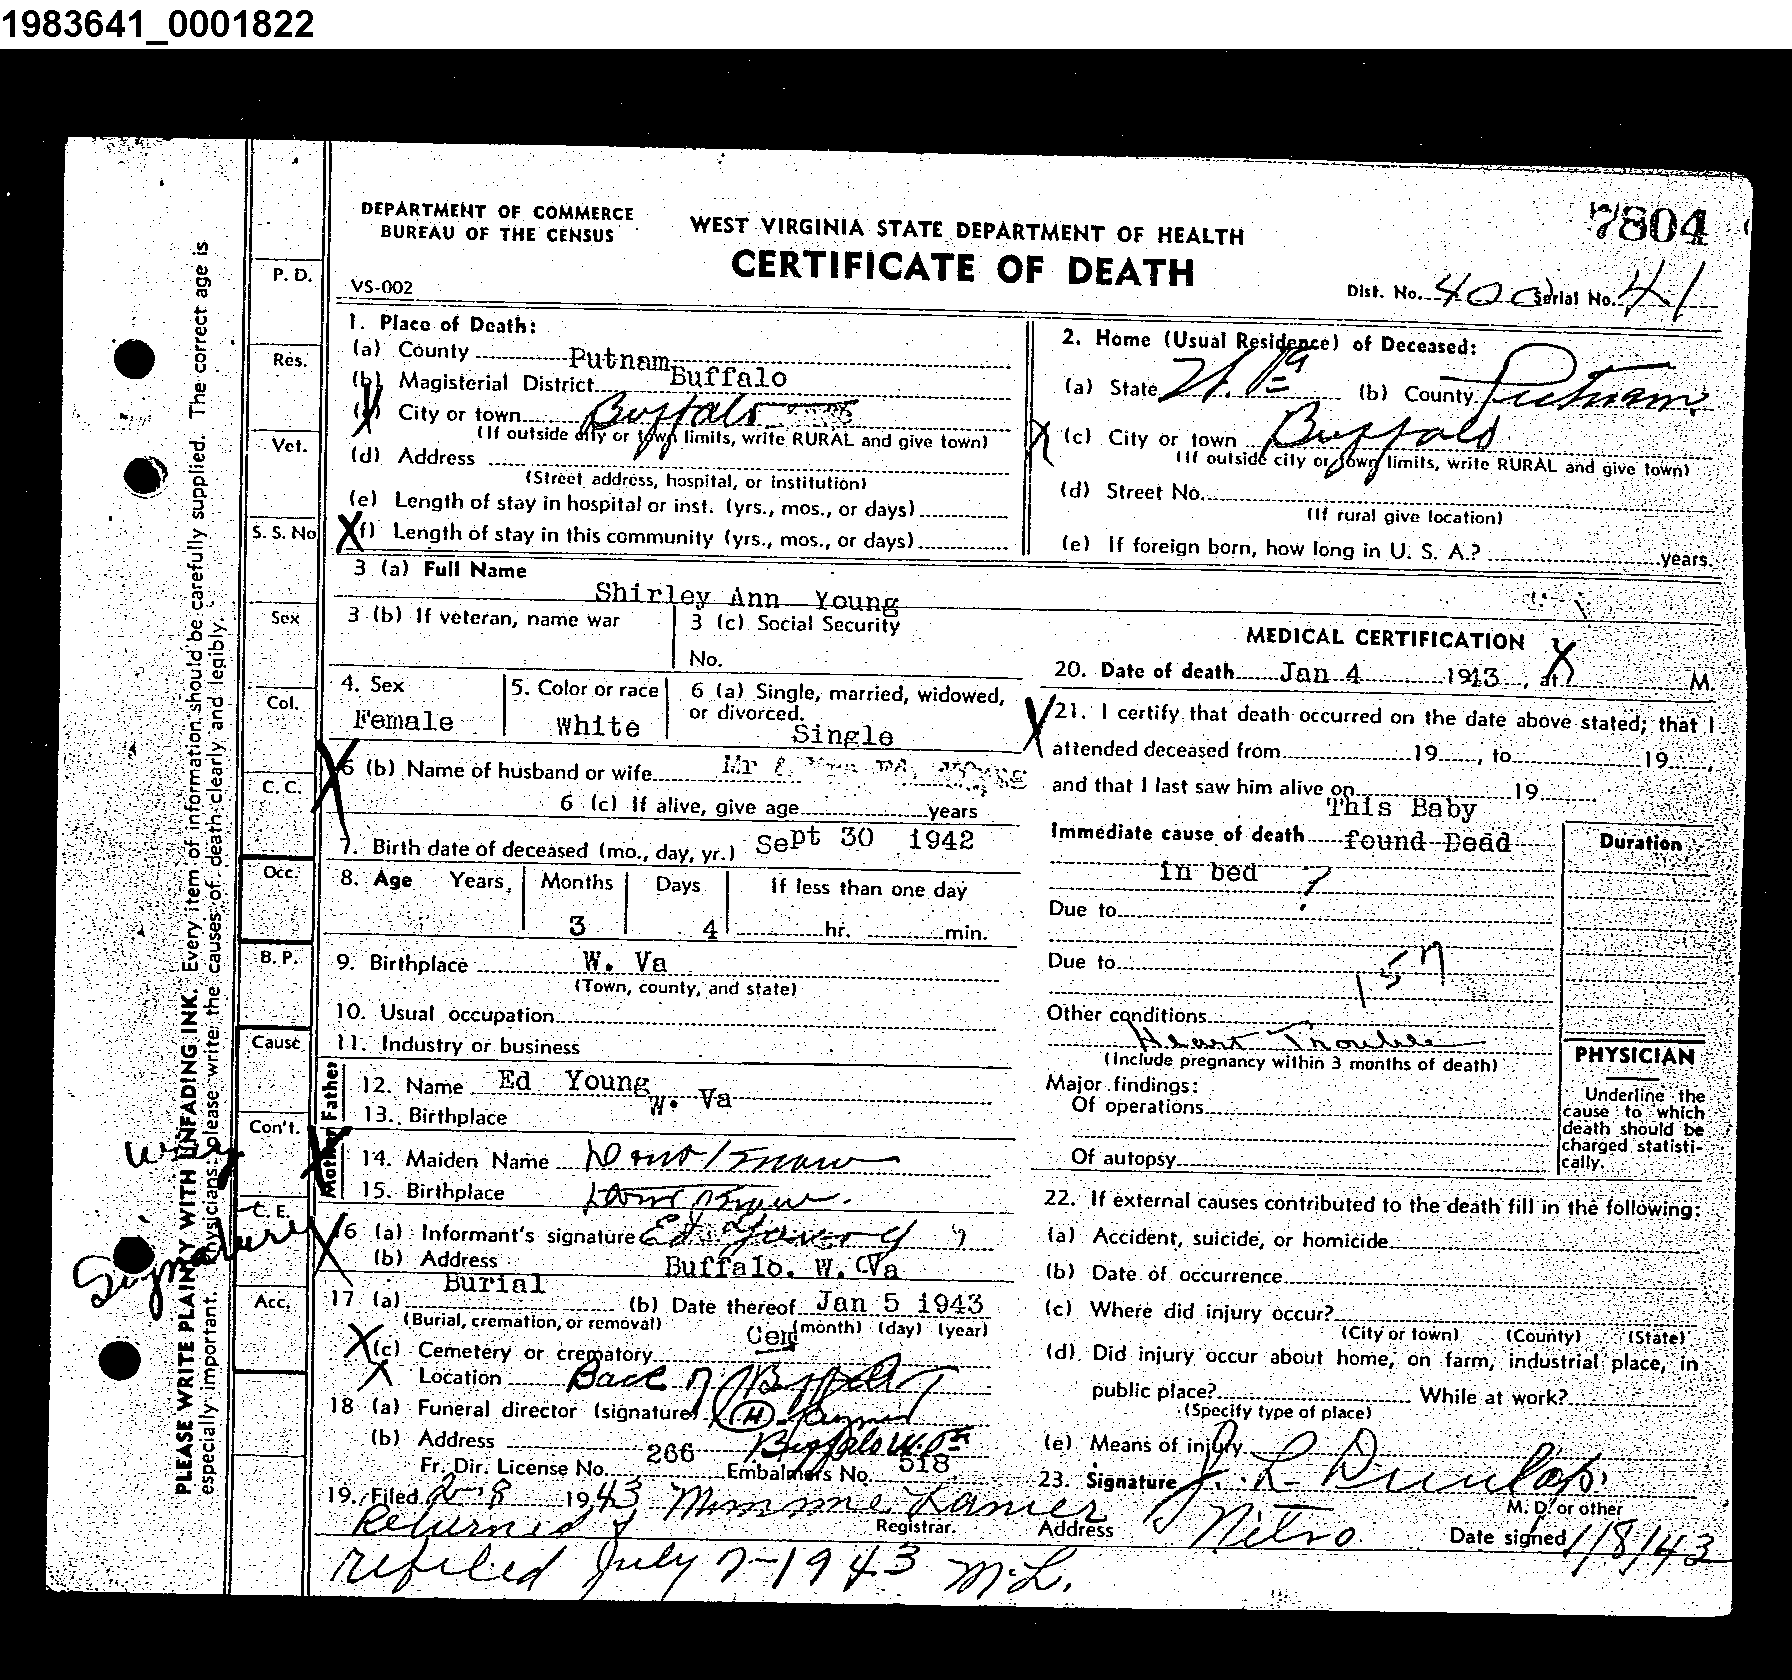 1983641_0001822
DEPARTMENT OF COMMERCE
BUREAU OF THE CENSUS
WEST VIRGINIA STATE DEPARTMENT OF HEALTH
CERTIFICATE OF DEATH
7804
VS-002
Dist. No. 400 Serial No. 41
PLEASE WRITE PLAINLY WITH UNFADING INK. Every item of information should be carefully supplied. The correct age is
especially important. Physicians: please write the causes of death clearly and legibly.
Signature
P. D.
Res.
Vet.
S. S. No
Sex
Col.
C. C.
Occ.
B. P.
Cause
Con't.
C. E.
Acc.
1. Place of Death:
(a) County Putnam
(b) Magisterial District Buffalo
(c) City or town Buffalo
(If outside city or town limits, write RURAL and give town)
(d) Address
(Street address, hospital, or institution)
(e) Length of stay in hospital or inst. (yrs., mos., or days)
X (f) Length of stay in this community (yrs., mos., or days)
2. Home (Usual Residence) of Deceased:
(a) State W. Va (b) County Putnam
X (c) City or town Buffalo
(If outside city or town limits, write RURAL and give town)
(d) Street No.
(If rural give location)
(e) If foreign born, how long in U. S. A.? years.
3 (a) Full Name
Shirley Ann Young
3 (b) If veteran, name war
3 (c) Social Security
No.
4. Sex
Female
5. Color or race
White
6 (a) Single, married, widowed,
or divorced.
Single
X 6 (b) Name of husband or wife Mr &
6 (c) If alive, give age years
7. Birth date of deceased (mo., day, yr.) Sept 30 1942
8. Age Years Months Days If less than one day
3 4 hr. min.
9. Birthplace W. Va
(Town, county, and state)
10. Usual occupation
11. Industry or business
Father
12. Name Ed Young
13. Birthplace W. Va
Mother
14. Maiden Name Dont Know
15. Birthplace Dont Know.
X 16 (a) Informant's signature Ed Young
(b) Address Buffalo. W. Va
17 (a) Burial (b) Date thereof Jan 5 1943
(Burial, cremation, or removal) (month) (day) (year)
X (c) Cemetery or crematory Cem
X Location Back of Buffalo
18 (a) Funeral director (signature)
(b) Address Buffalo W. Va
Fr. Dir. License No. 266 Embalmers No. 518
19. Filed 2-8 1943 Minnie Lanier
Registrar.
Returned &
refiled July 7-1943 M.L.
MEDICAL CERTIFICATION
20. Date of death Jan 4 1943, at X M.
X 21. I certify that death occurred on the date above stated; that I
attended deceased from 19, to 19,
and that I last saw him alive on 19
This Baby
Immediate cause of death found Dead
in bed ?
Duration
Due to
Due to 157
Other conditions
Heart Trouble
(Include pregnancy within 3 months of death)
Major findings:
Of operations
Of autopsy
PHYSICIAN
Underline the
cause to which
death should be
charged statisti-
cally.
22. If external causes contributed to the death fill in the following:
(a) Accident, suicide, or homicide
(b) Date of occurrence
(c) Where did injury occur?
(City or town) (County) (State)
(d) Did injury occur about home, on farm, industrial place, in
public place? While at work?
(Specify type of place)
(e) Means of injury
23. Signature J. L. Dunlap
M. D. or other
Address Nitro Date signed 1/8/43